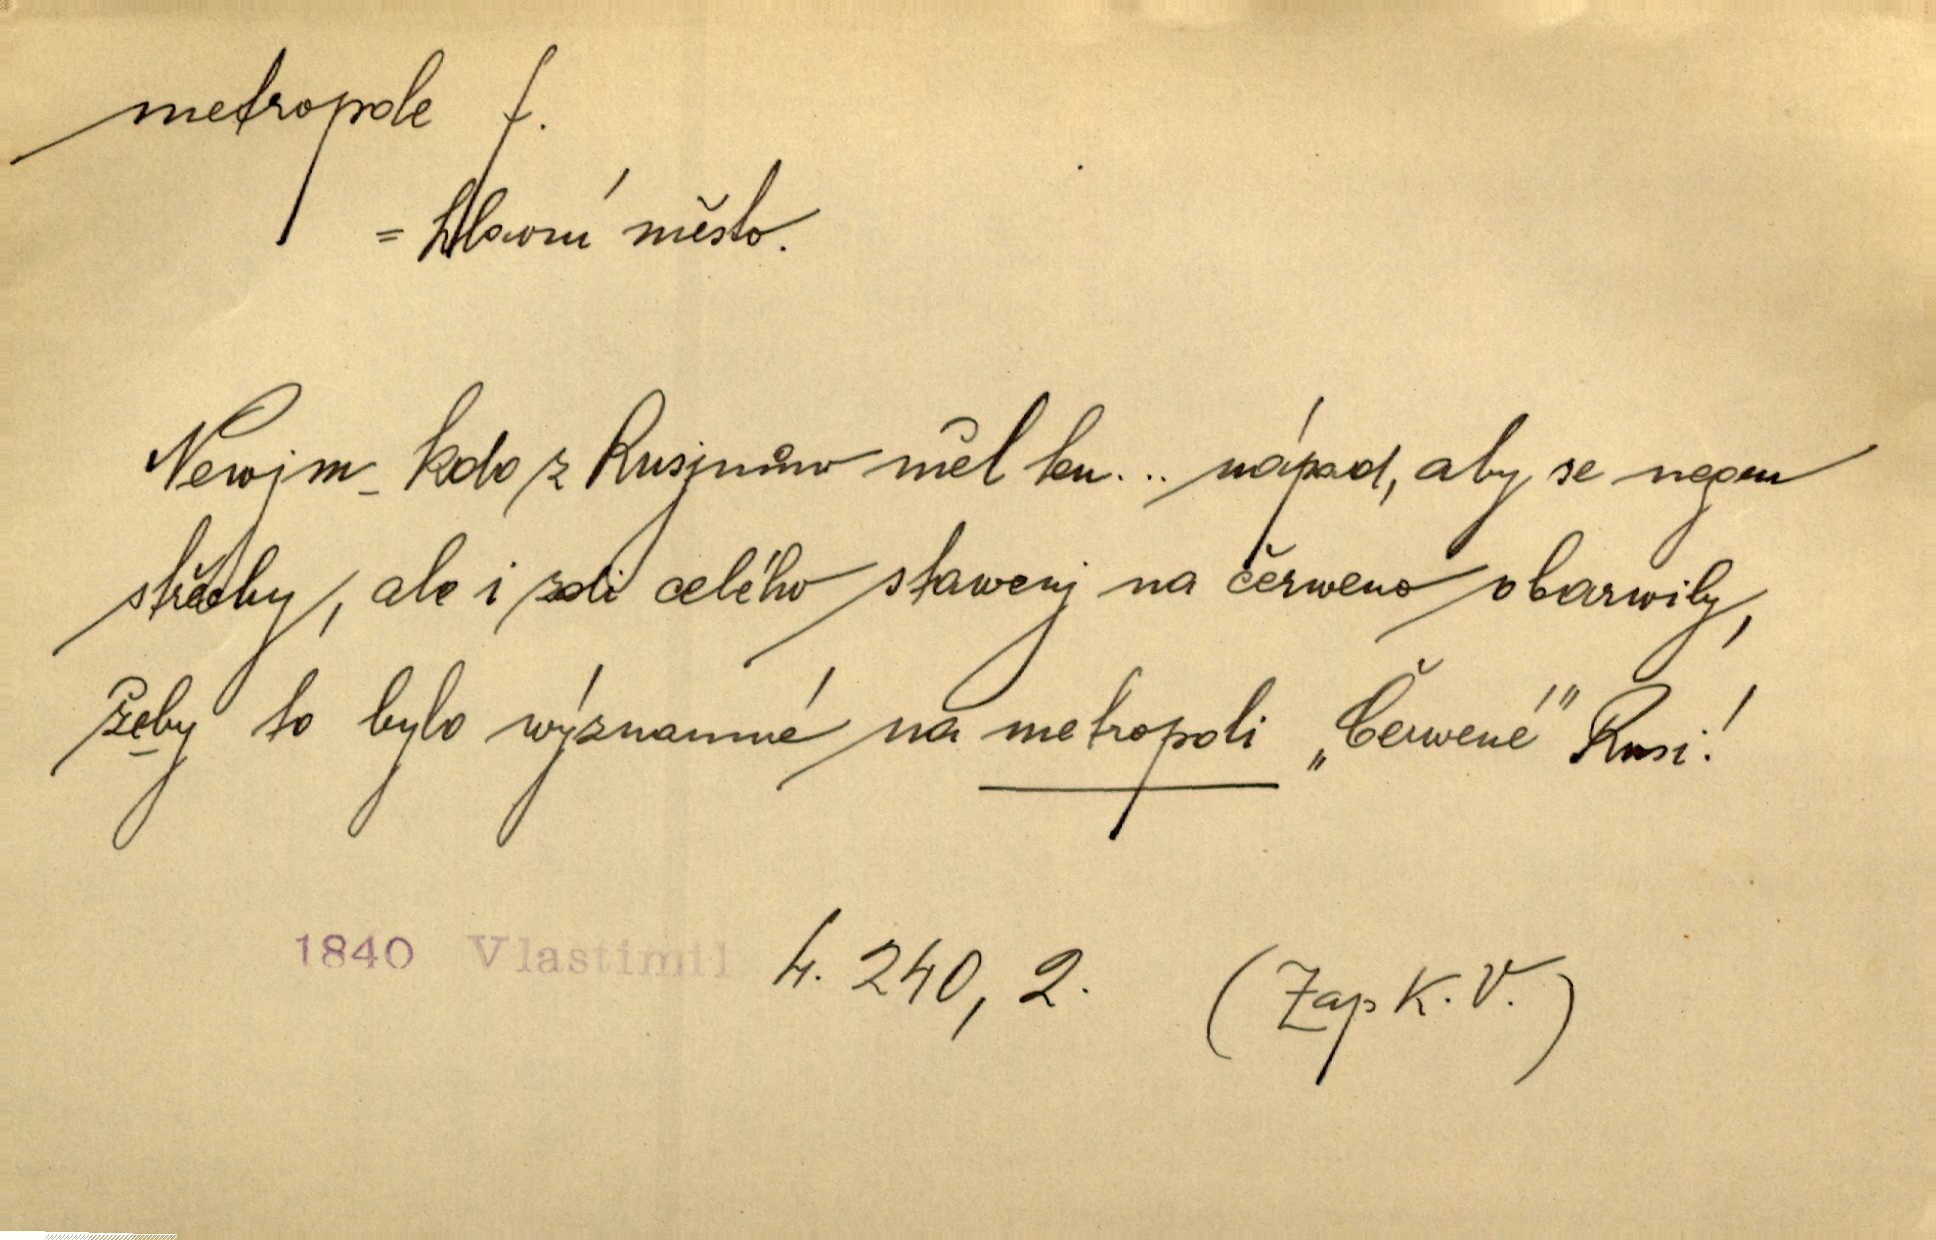 metropole f.
= hlavní město.
Newjm kdo z Rusjnůw měl ten... nápad, aby se negen
střechy, ale i zdi celého stawenj na čerweno obarwily,
žeby to bylo wýznamné na metropoli „Čerwené" Rusi!
1840 Vlastimil 4. 240, 2. (Zap K. V.)